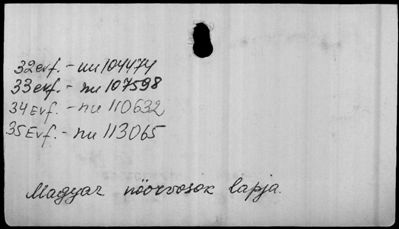 32 evf. - nu 104474
33 evf. - nu 107598
34 Evf. - nu 110632
35 Evf. - nu 113065
Magyar nőorvosok lapja.